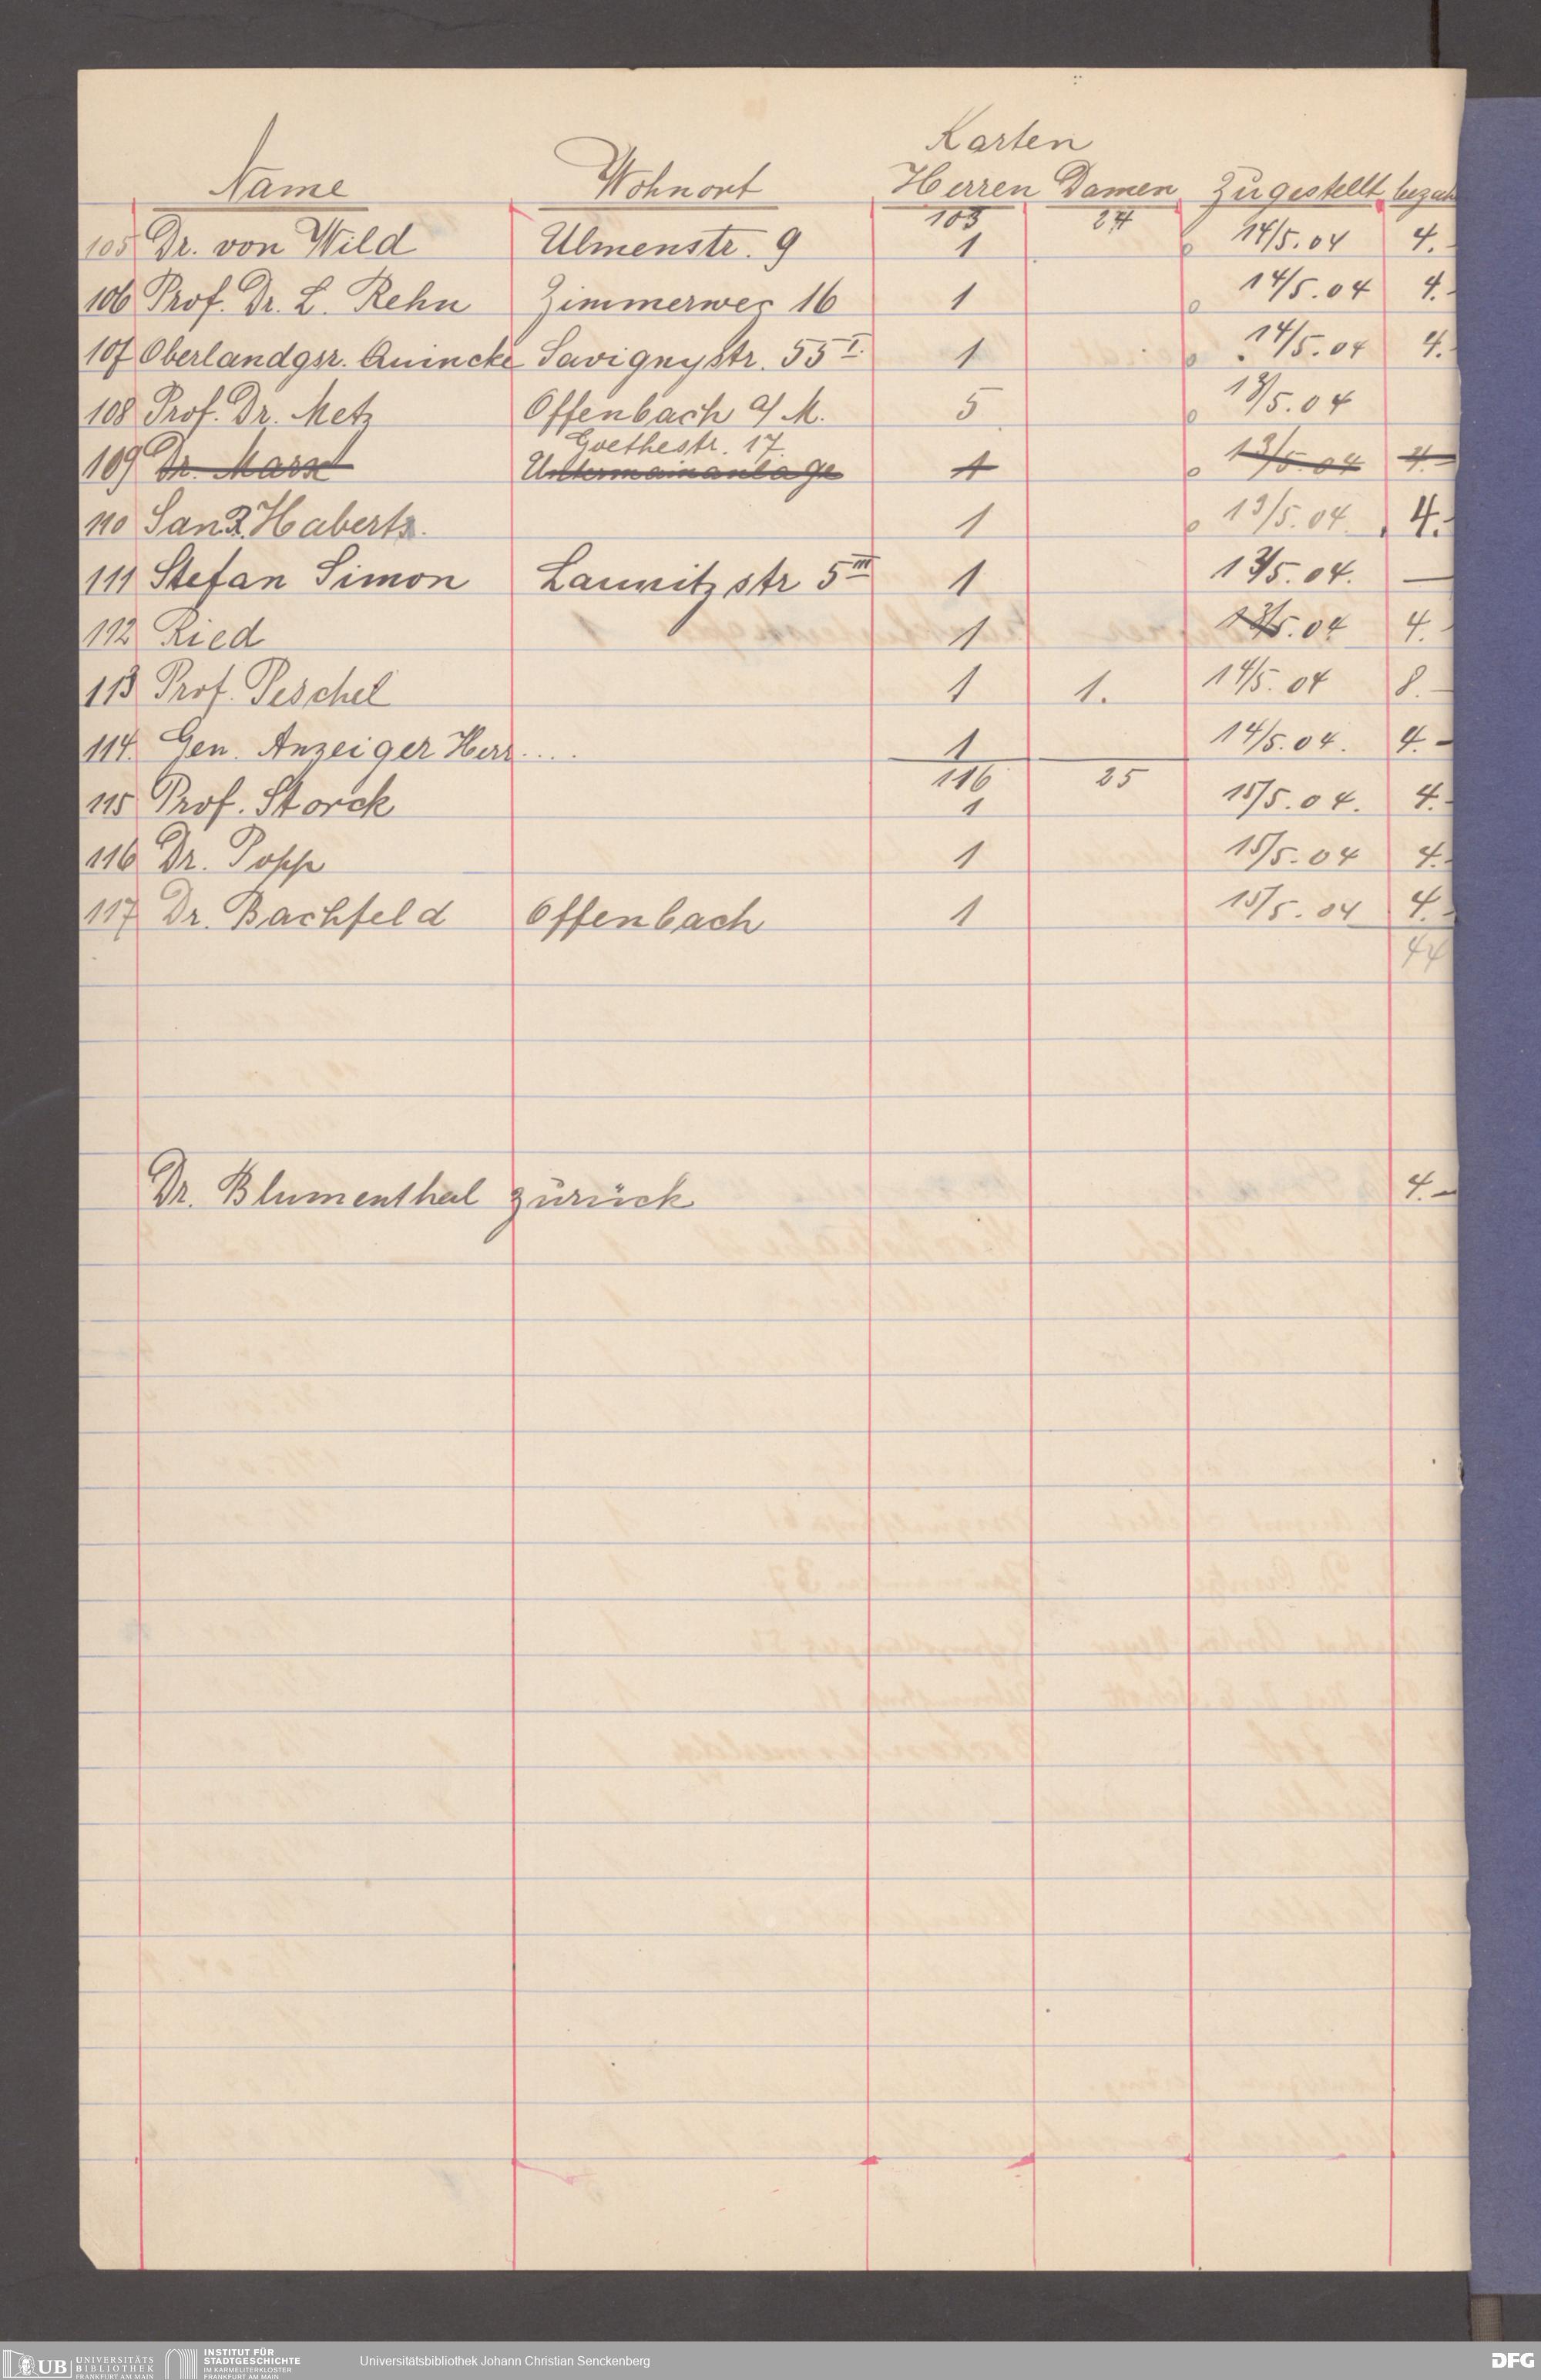 Karten
Name Wohnort Herren Damen Zugestellt bezah
103 24
105 Dr. von Wild Ulmenstr. 9 1 14/5.04 4.-
106 Prof. Dr. L. Rehn Zimmerweg 16 1 14/5.04 4.-
107 Oberlandgsr. Quincke Savignystr. 55 I. 1 14/5.04 4.-
108 Prof. Dr. Metz Offenbach a/M. 5 13/5.04
Goethestr. 17.
109 Dr. Marx Untermainanlage 1 13/5.04 4.-
110 San.R. Habertz. 1 13/5.04. 4.-
111 Stefan Simon Launitzstr 5 III 1 13/5.04. —
112 Ried 1 13/5.04 4.-
113 Prof. Peschel 1 1. 14/5.04 8.-
114. Gen. Anzeiger Herr.... 1 14/5.04. 4.-
116 25
115 Prof. Storck 1 15/5.04. 4.-
116 Dr. Popp 1 15/5.04 4.-
117 Dr. Bachfeld Offenbach 1 15/5.04 4.-
44
Dr. Blumenthal zurück 4.-
UB UNIVERSITÄTS
BIBLIOTHEK
FRANKFURT AM MAIN
INSTITUT FÜR
STADTGESCHICHTE
IM KARMELITERKLOSTER
FRANKFURT AM MAIN
Universitätsbibliothek Johann Christian Senckenberg
DFG